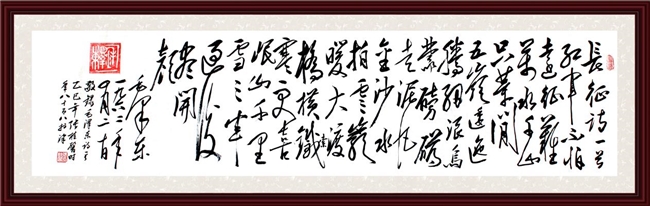 长征诗一首
红军不怕
远征難
萬水千山
只等闲
五岭逶迤
腾细浪乌
蒙磅礴
走泥丸
金沙水
拍云崖
暖大渡
橋横鐵索
寒更喜
岷山千里
雪三军
过后
尽開
颜
毛泽东
一九六二年
四月二十日